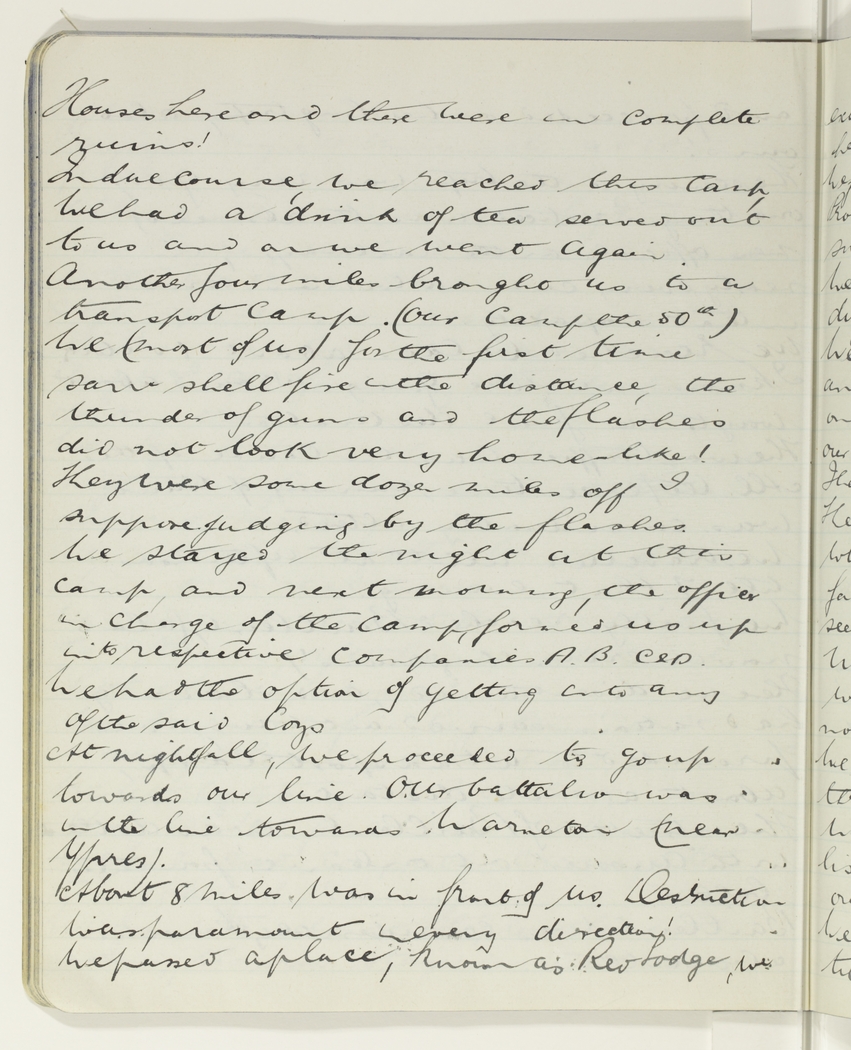 Houses here and there were in complete
ruins!
In due course, we reached this camp,
We had a drink of tea served out
to us and on we went again.
Another four miles brought us to a
transport Camp. (Our Camp the 50th)
We (most of us) for the first time
saw shell fire in the distance, the
thunder of guns and the flashes
did not look very home-like!
They were some dozen miles off I
suppose, judging by the flashes.
We stayed the night at this
camp, and next morning, the officer
in charge of the camp, formed us up
into respective Companies A. B. C & D.
We had the option of getting into any
of the said Coys
At nightfall, we proceeded to go up
towards our line. Our battalion was
in the line towards Warneton (near
Ypres).
About 8 miles was in front of us. Destruction
was paramount in every direction!
We passed a place, known as Red Lodge, we